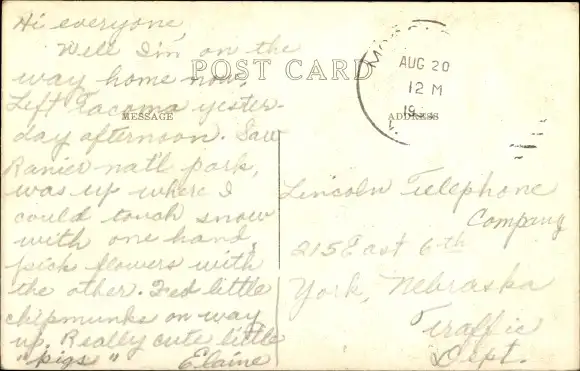 Hi everyone,
Well I'm on the
way home now.
Left Tacoma yester-
day afternoon. Saw
Ranier nat'l park,
was up where I
could touch snow
with one hand,
pick flowers with
the other. Fed little
chipmunks on way
up. Really cute little
"pigs" Elaine
POST CARD
MESSAGE
ADDRESS
AUG 20
12 M
Lincoln Telephone
Company
215 East 6th
York, Nebraska
Traffic
Dept.